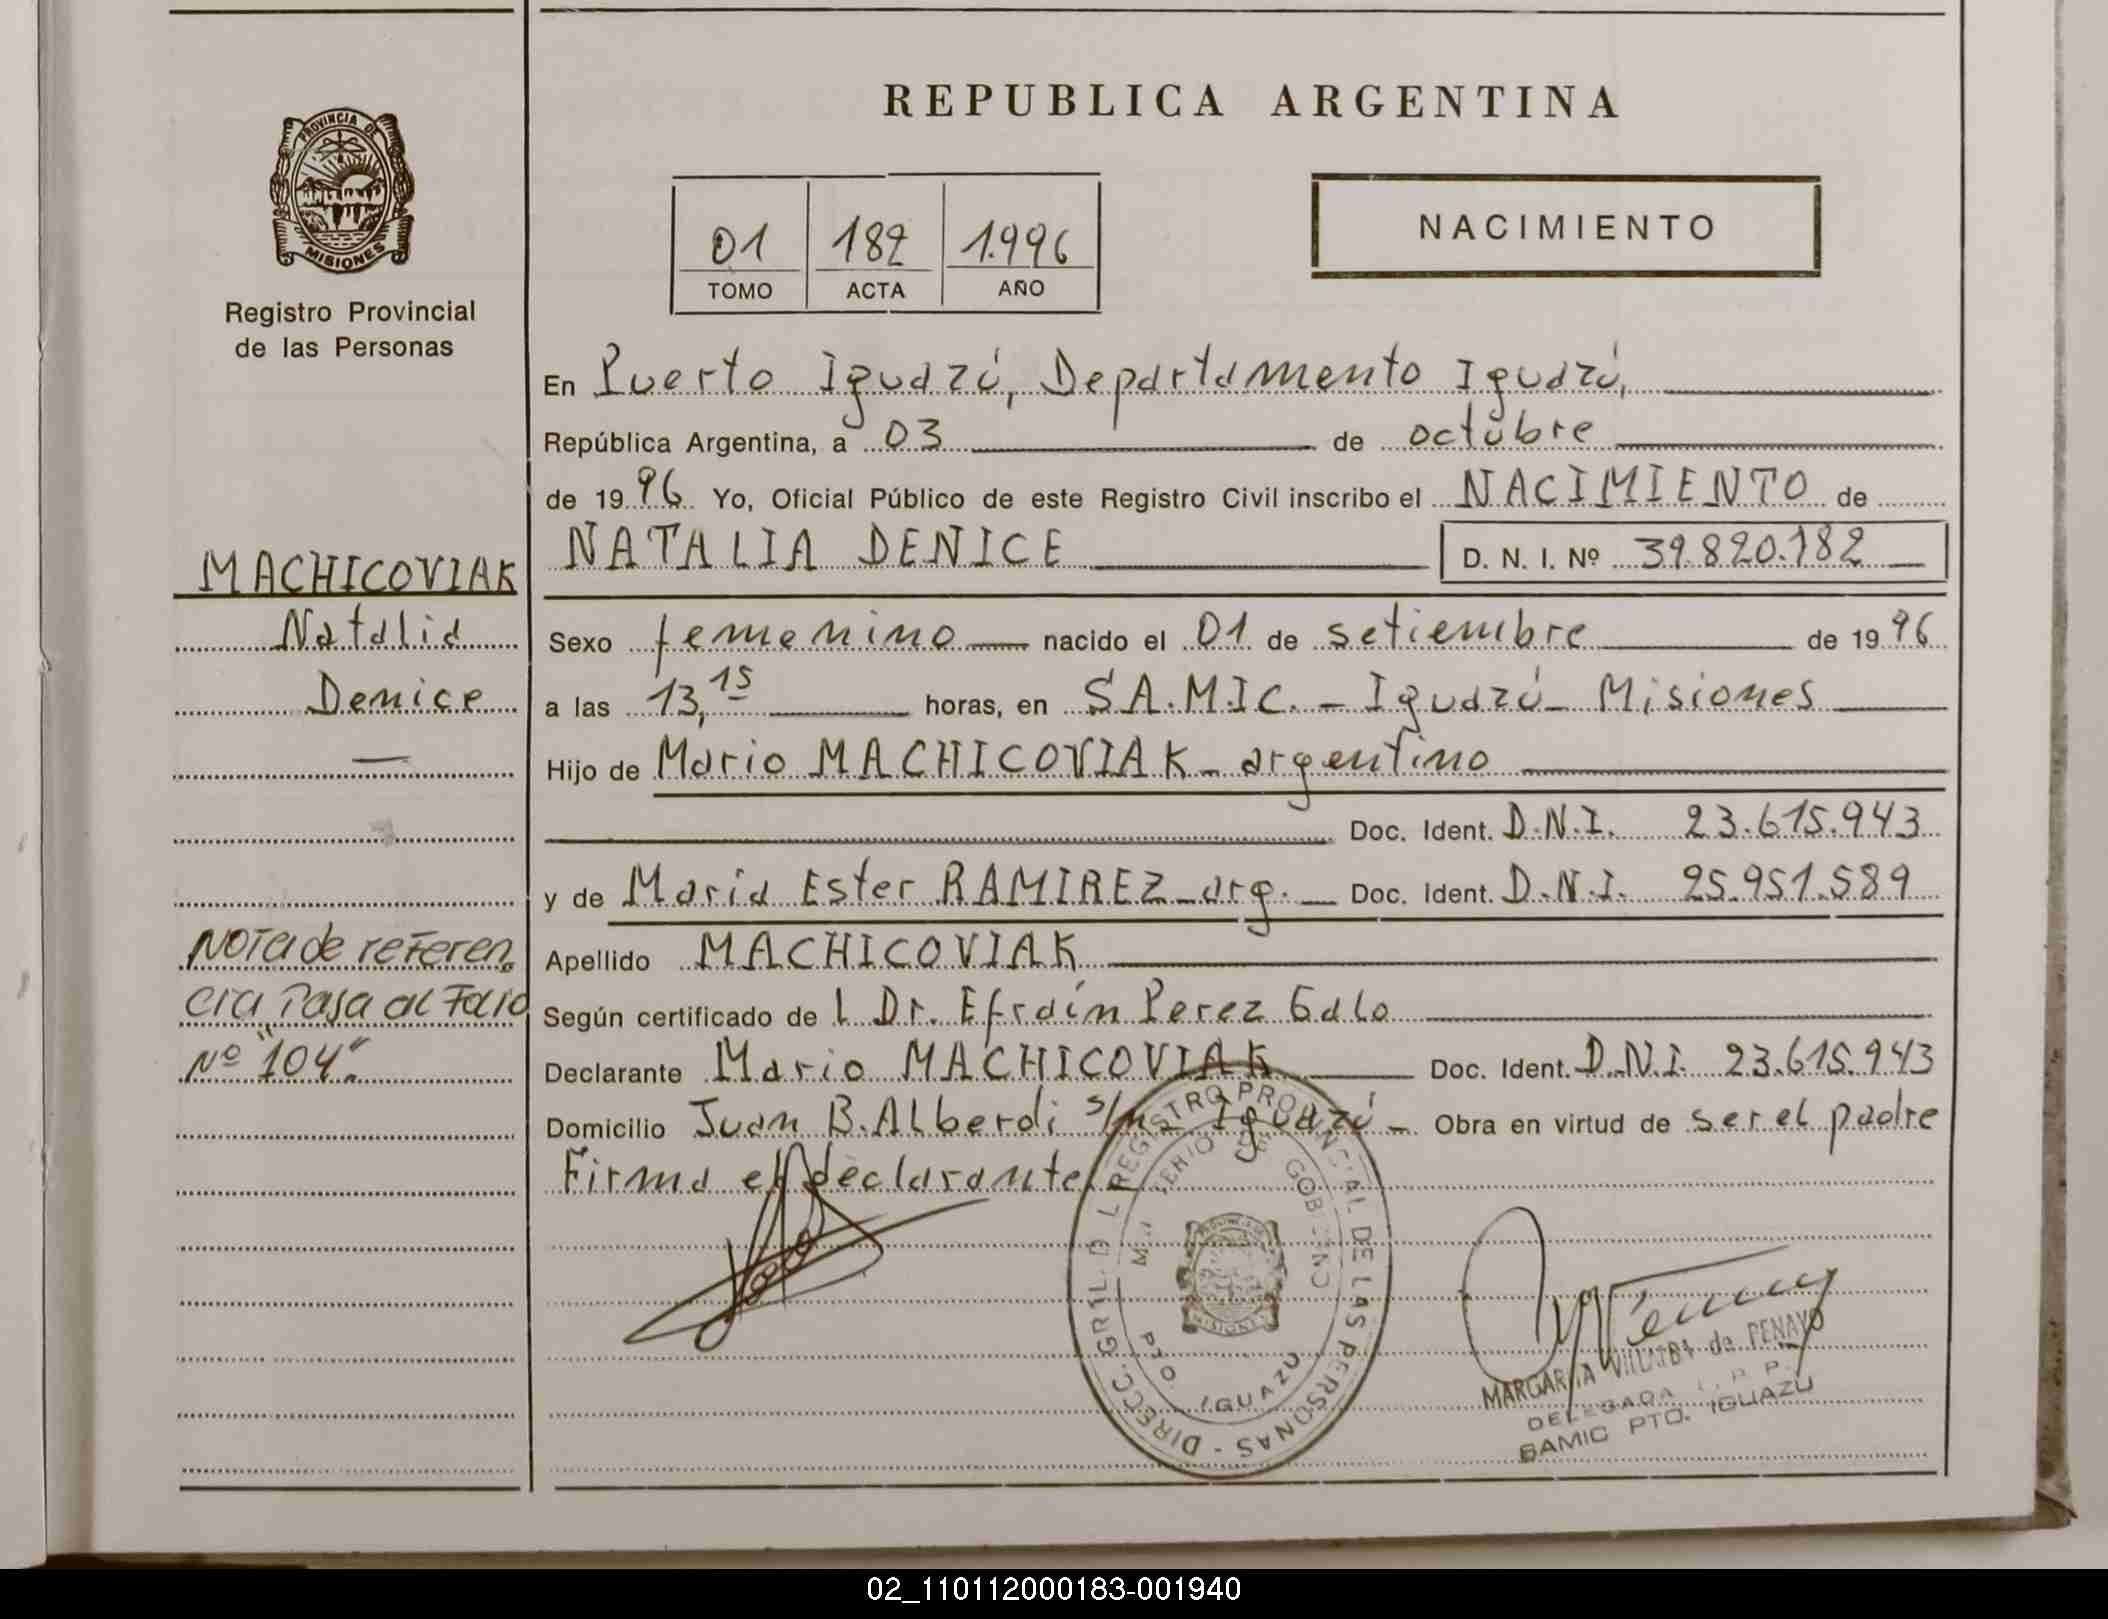 REPUBLICA ARGENTINA
PROVINCIA DE
MISIONES
Registro Provincial
de las Personas
01 182 1.996
TOMO ACTA AÑO
NACIMIENTO
En Puerto Iguazú, Departamento Iguazú,
República Argentina, a 03 de octubre
de 1996 Yo, Oficial Público de este Registro Civil inscribo el NACIMIENTO de
NATALIA DENICE D. N. I. Nº 39.820.182
MACHICOVIAK
Natalia
Denice
Sexo femenino nacido el 01 de setiembre de 1996
a las 13,15 horas, en S.A.M.I.C. - Iguazú - Misiones
Hijo de Mario MACHICOVIAK - argentino
Doc. Ident. D.N.I. 23.615.943
y de Maria Ester RAMIREZ - arg. Doc. Ident. D.N.I. 25.951.589
Apellido MACHICOVIAK
Según certificado de l Dr. Efraín Perez Galo
Declarante Mario MACHICOVIAK Doc. Ident. D.N.I. 23.615.943
Domicilio Juan B. Alberdi s/nº Iguazú - Obra en virtud de ser el padre
Firma el declarante
Nota de referen
cia Pasa al Folio
Nº "104".
DIRECC. GRAL. DEL REGISTRO PROVINCIAL DE LAS PERSONAS
MINISTERIO DE GOBIERNO
PTO. IGUAZU
MISIONES
MARGARITA de PENAYO
DELEGADA
SAMIC PTO. IGUAZU
02_110112000183-001940